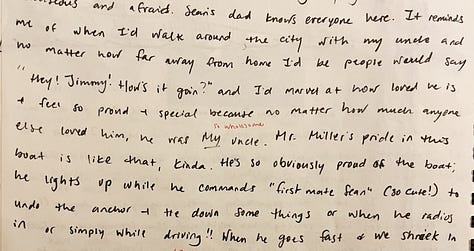 and afraid. Sean's dad knows everyone here. It reminds
me of when I'd walk around the city with my uncle and
no matter how far away from home I'd be people would say
"Hey! Jimmy! How's it goin?" and I'd marvel at how loved he is
+ feel so proud + special because no matter how much anyone
so wholesome
else loved him, he was My uncle. Mr. Miller's pride in this
boat is like that, kinda. He's so obviously proud of the boat;
he lights up while he commands "first mate Sean" (so cute!) to
undo the anchor + tie down some things or when he radios
in or simply while driving!! When he goes fast + we shriek in